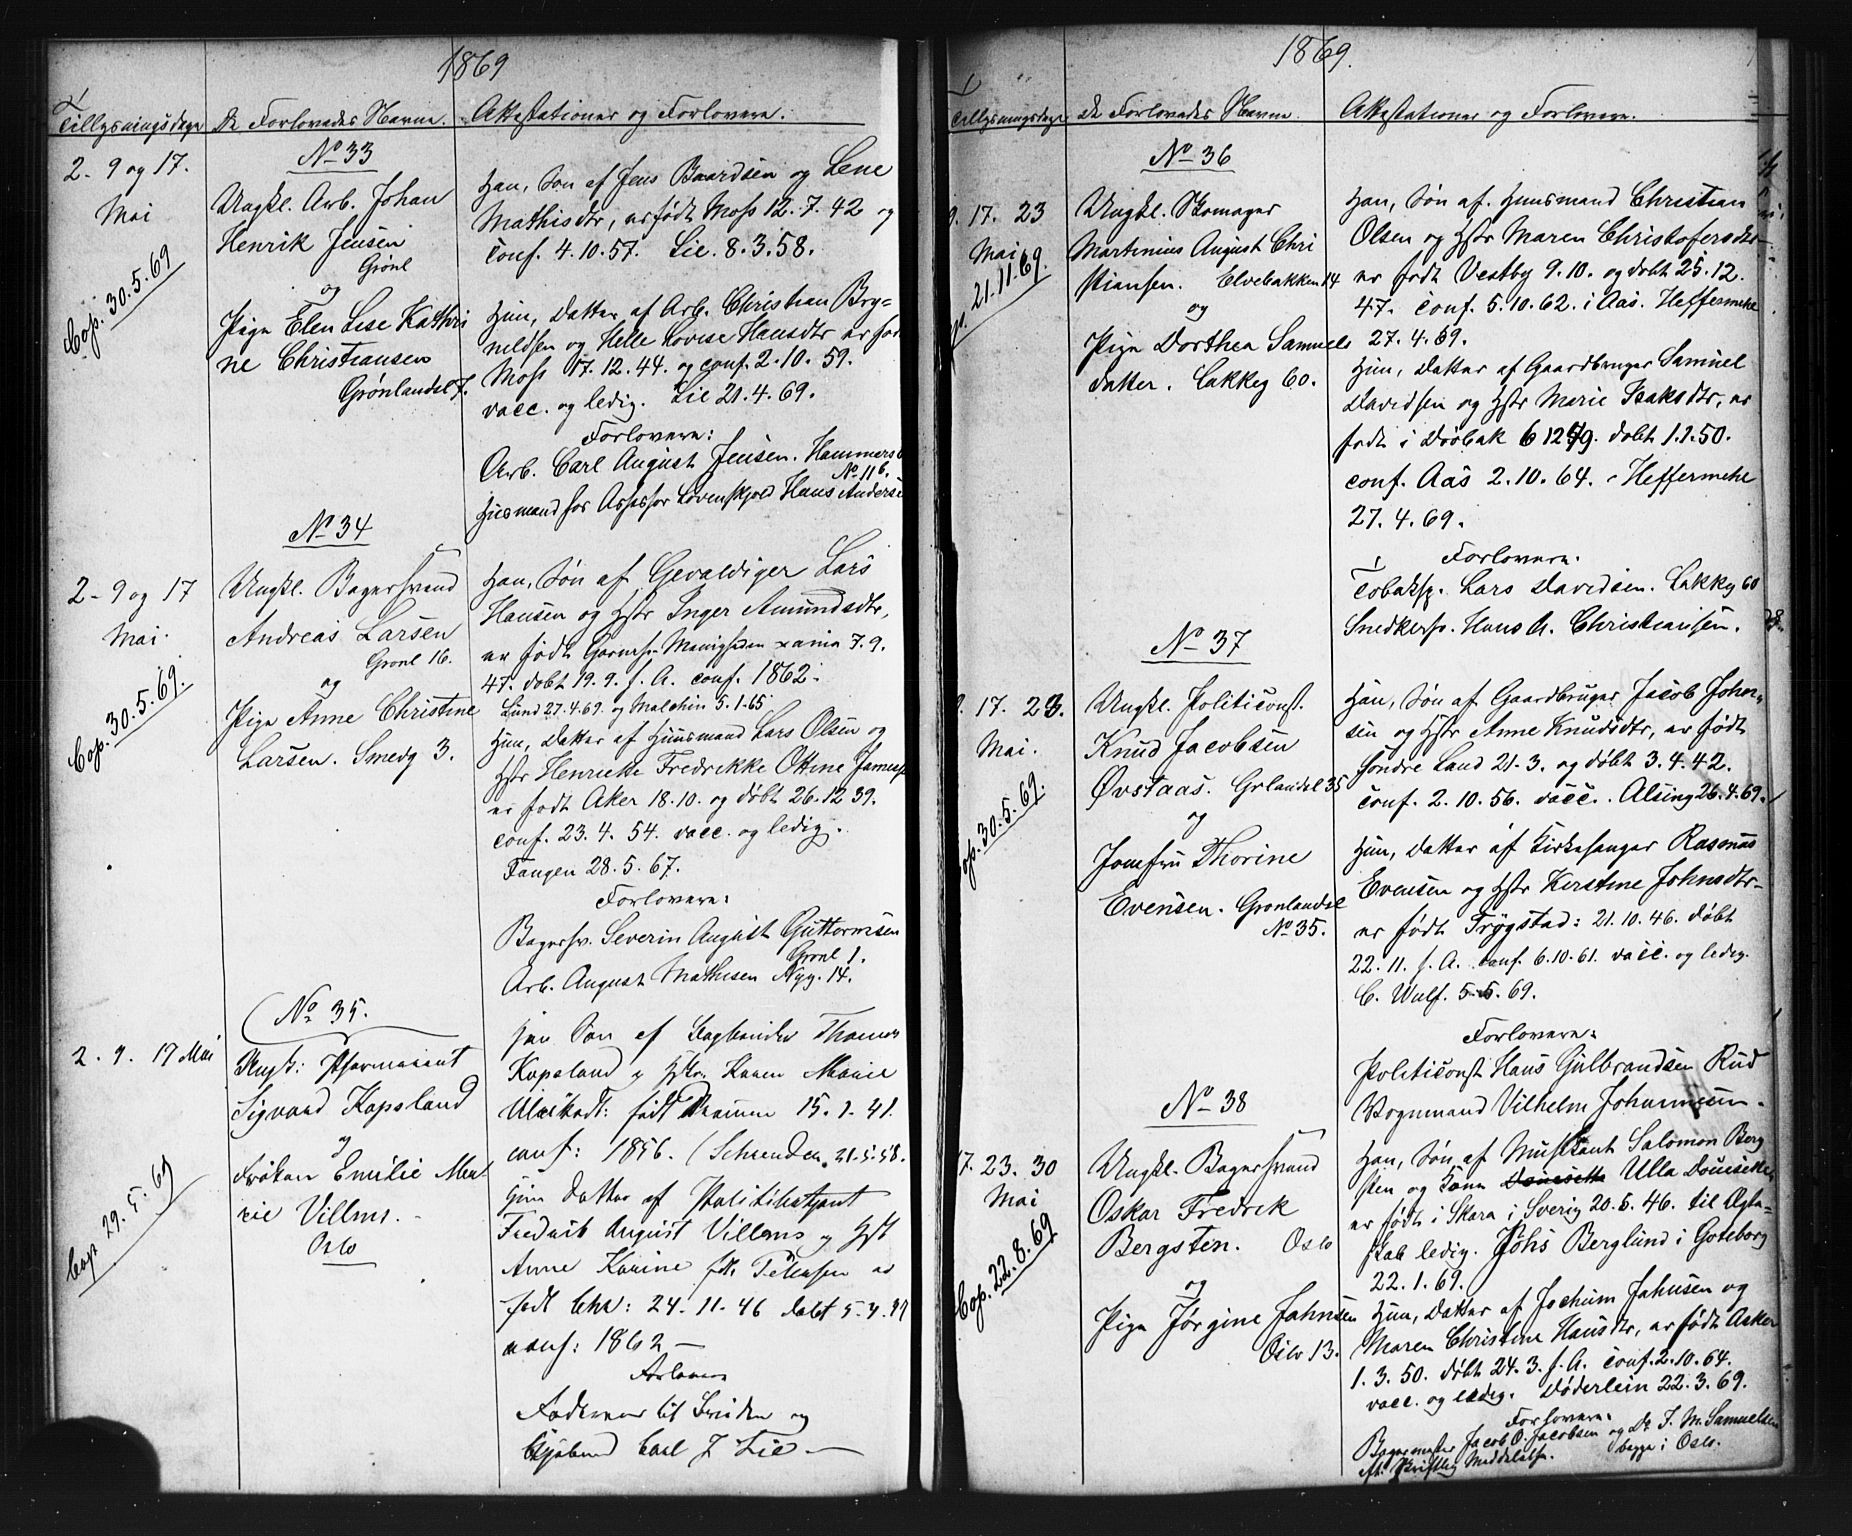 1869
Tillysningsdage De Forlovedes Navne. Attestationer og Forlovere.
No 33
2. 9 og 17.
Mai
Cop. 30.5.69
Ungkl. Arb. Johan
Henrik Jensen
Grønl
og
Pige Elen Lise Kathri
ne Christiansen
Grønlandsl 7.
Han, Søn af Jens Baardsen og Lene
Mathisdtr, er født Moss 12.7.42 og
conf. 4.10.57. Lie. 8.3.58.
Hun, Datter af Arb. Christian Bry=
nildsen og Helle Lovise Hansdtr er fød
Moss 17.12.44. og conf. 2.10.59.
vacc. og ledig. Lie 21.4.69.
Forlovere:
Arb. Carl August Jensen. Hammersb
No 116.
Husmand hos Assessor Løvenskjold Hans Anders
No 34
2 - 9 og 17
Mai.
Cop. 30.5.69.
Ungkl. Bagersvend
Andreas Larsen
Grønl 16.
og
Pige Anne Christine
Larsen. Smedg 3.
Han, Søn af Gevaldiger Lars
Hansen og Hstr Inger Amundsdtr,
er født Garns. Menigheden xania 7.9.
47. døbt 19.9. s. A. conf. 1862.
Lund 27.4.69. og Malchin 5.1.65
Hun, Datter af Huusmand Lars Olsen og
Hstr Henriette Fredrikke Ottine
er født Aker 18.10. og døbt 26.12 39.
conf. 23.4.54. vacc. og ledig.
Tangen 28.5.67.
Forlovere:
Bagersv. Severin August Guttormsen
Grønl 1.
Arb. August Mathisen Nyg. 14.
No 35.
2. 9. 17 Mai
Cop 29.5.69
Ungk: Pharmaceut
Sigvard Kopsland
og
Frøken Emilie Ma
rie Villms.
Oslo
Han Søn af Thomas
Kopsland og Hstr. Karen Marie
født 15.1.41.
conf: 1856. 21.5.58.
Hun Datter af Politibetjent
Frederik August Villms og Hst
Anne Karine fd. er
født Chr: 24.11.46 døbt 5.4.47
conf: 1862 —
Forlovere
Faderen til Bruden og
Carl J Lie —
1869.
Tillysningsdage De Forlovedes Navne. Attestationer og Forlovere.
No 36
9. 17. 23
Mai
21.11.69.
Ungkl. Skomager
Martinius August Chri
stiansen. Elvebakken 14
og
Pige Dorthea Samuels
datter. Lakkeg 60.
Han, Søn af. Huusmand Christian
Olsen og Hstr Maren Christofersdtr
er født Vestby 9.10. og døbt 25.12.
47. conf. 5.10.62. i Aas. Heffermehl
27.4.69.
Hun, Datter af Gaardbruger Samuel
Davidsen og Hstr Marie Isaksdtr, er
født i Drøbak 6 12 49. døbt 1.1.50.
conf. Aas 2.10.64. - Heffermehl
27.4.69.
Forlovere:
Tobaksp. Lars Davidsen. Lakkg 60
Snedkersv. Hans A. Christiansen.
No 37
9. 17. 23.
Mai.
Cop. 30.5.69.
Ungkl. Politiconst.
Knud Jacobsen
Øvstaas. Grlandsl 35
og
Jomfru Thorine
Evensen. Grønlandsl
No 35.
Han, Søn af Gaardbruger Jacob John=
sen og Hstr Anne Knudsdtr, er født
Søndre Land 21.3. og døbt 3.4.42.
conf. 2.10.56. vacc. Alsing 26.4.69.
Hun, Datter af Kirkesanger Rasmus
Evensen og Hstr Kerstine Johnsdtr
er født Trøgstad: 21.10.46. døbt
22.11. s. A. conf. 6.10.61. vacc. og ledig.
C. Wulf. 5.5.69.
Forlovere:
Politiconst Hans Gulbrandsen Rud
Vognmand Vilhelm Johannesen.
No 38
17. 23. 30
Mai
Cop. 22.8.69
Ungkl. Bagersvend
Oskar Fredrik
Bergsten. Oslo
og
Pige Jørgine Jahnsen
Oslo 13.
Han, Søn af Musikant Salomon Berg
sten og Kone Ulla
er født i Skara i Sverig 20.5.46. til Ægte=
skab ledig. Johs Berglund i Gøteborg
22.1.69.
Hun, Datter af Jochum Jahnsen og
Maren Christine Hansdtr, er født Asker
1.3.50. døbt 24.3. s. A. conf. 2.10.64.
vacc. og ledig. Døderlein 22.3.69.
Forlovere:
Bagermester Jacob O. Jacobsen og Do I. M. Samuelsen
begge i Oslo.
At. Skriftlig Meddelelse.